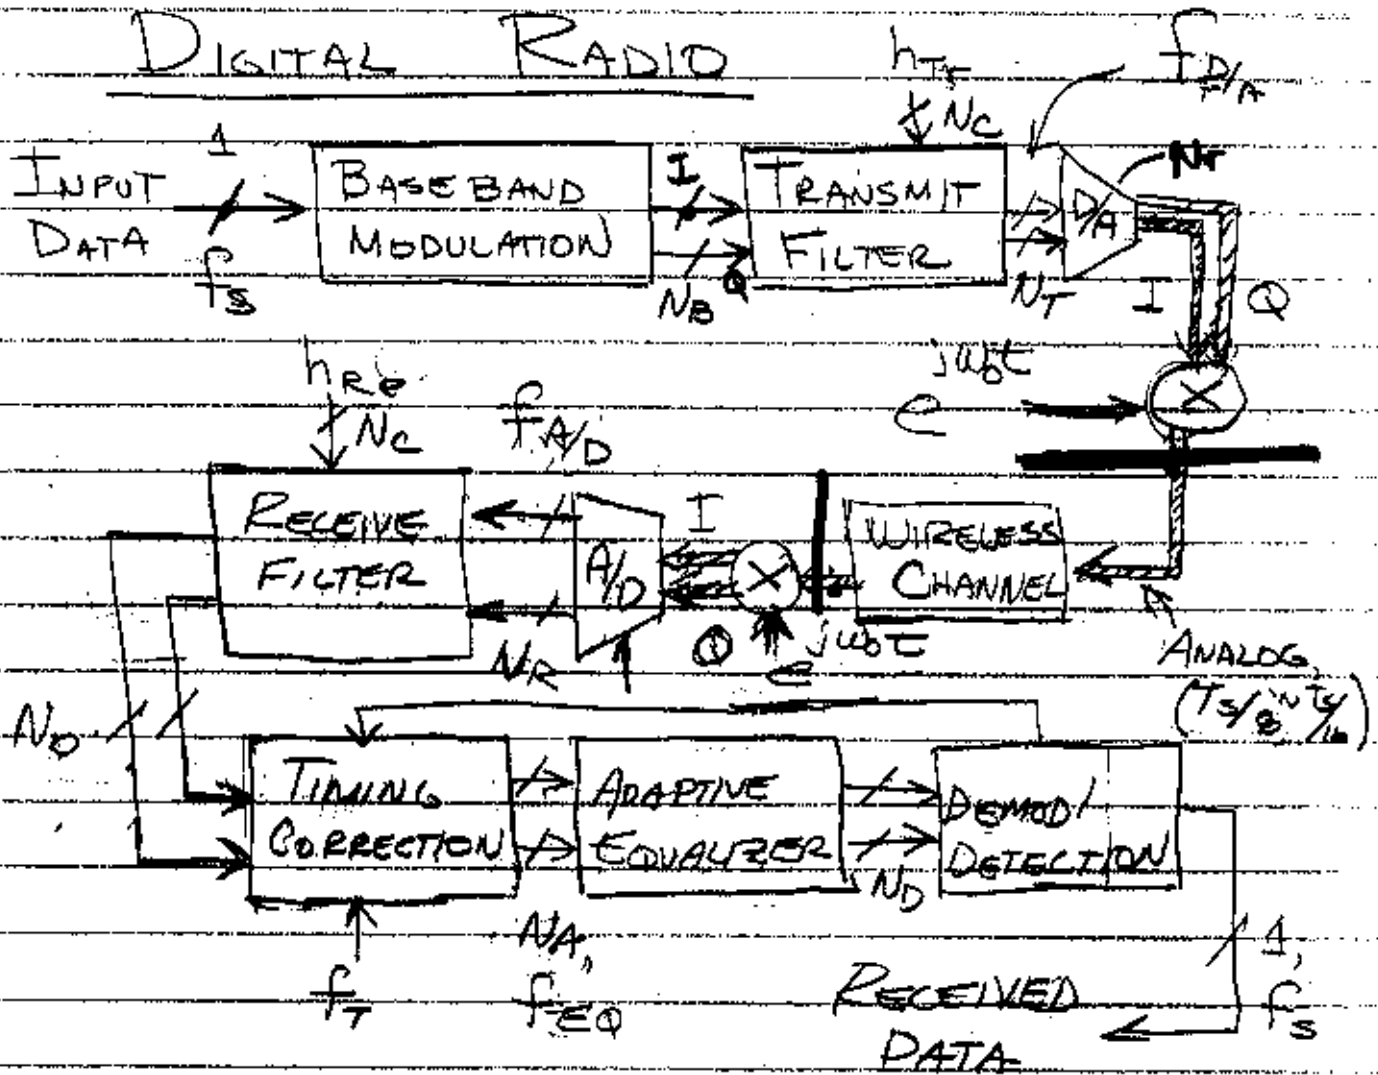 DIGITAL RADIO
h_Tr
f_D/A
N_C
1
INPUT
DATA
f_S
BASEBAND
MODULATION
I
Q
N_B
TRANSMIT
FILTER
N_T
D/A
N_T
I
Q
e^jω₀t
h_Re
N_C
f_A/D
RECEIVE
FILTER
N_R
A/D
I
Q
e^jω₀t
WIRELESS
CHANNEL
ANALOG,
(T_S/8 ~ T_S/16)
N_O
TIMING
CORRECTION
f_T
N_A,
f_EQ
ADAPTIVE
EQUALIZER
N_D
DEMOD/
DETECTION
1,
f_S
RECEIVED
DATA